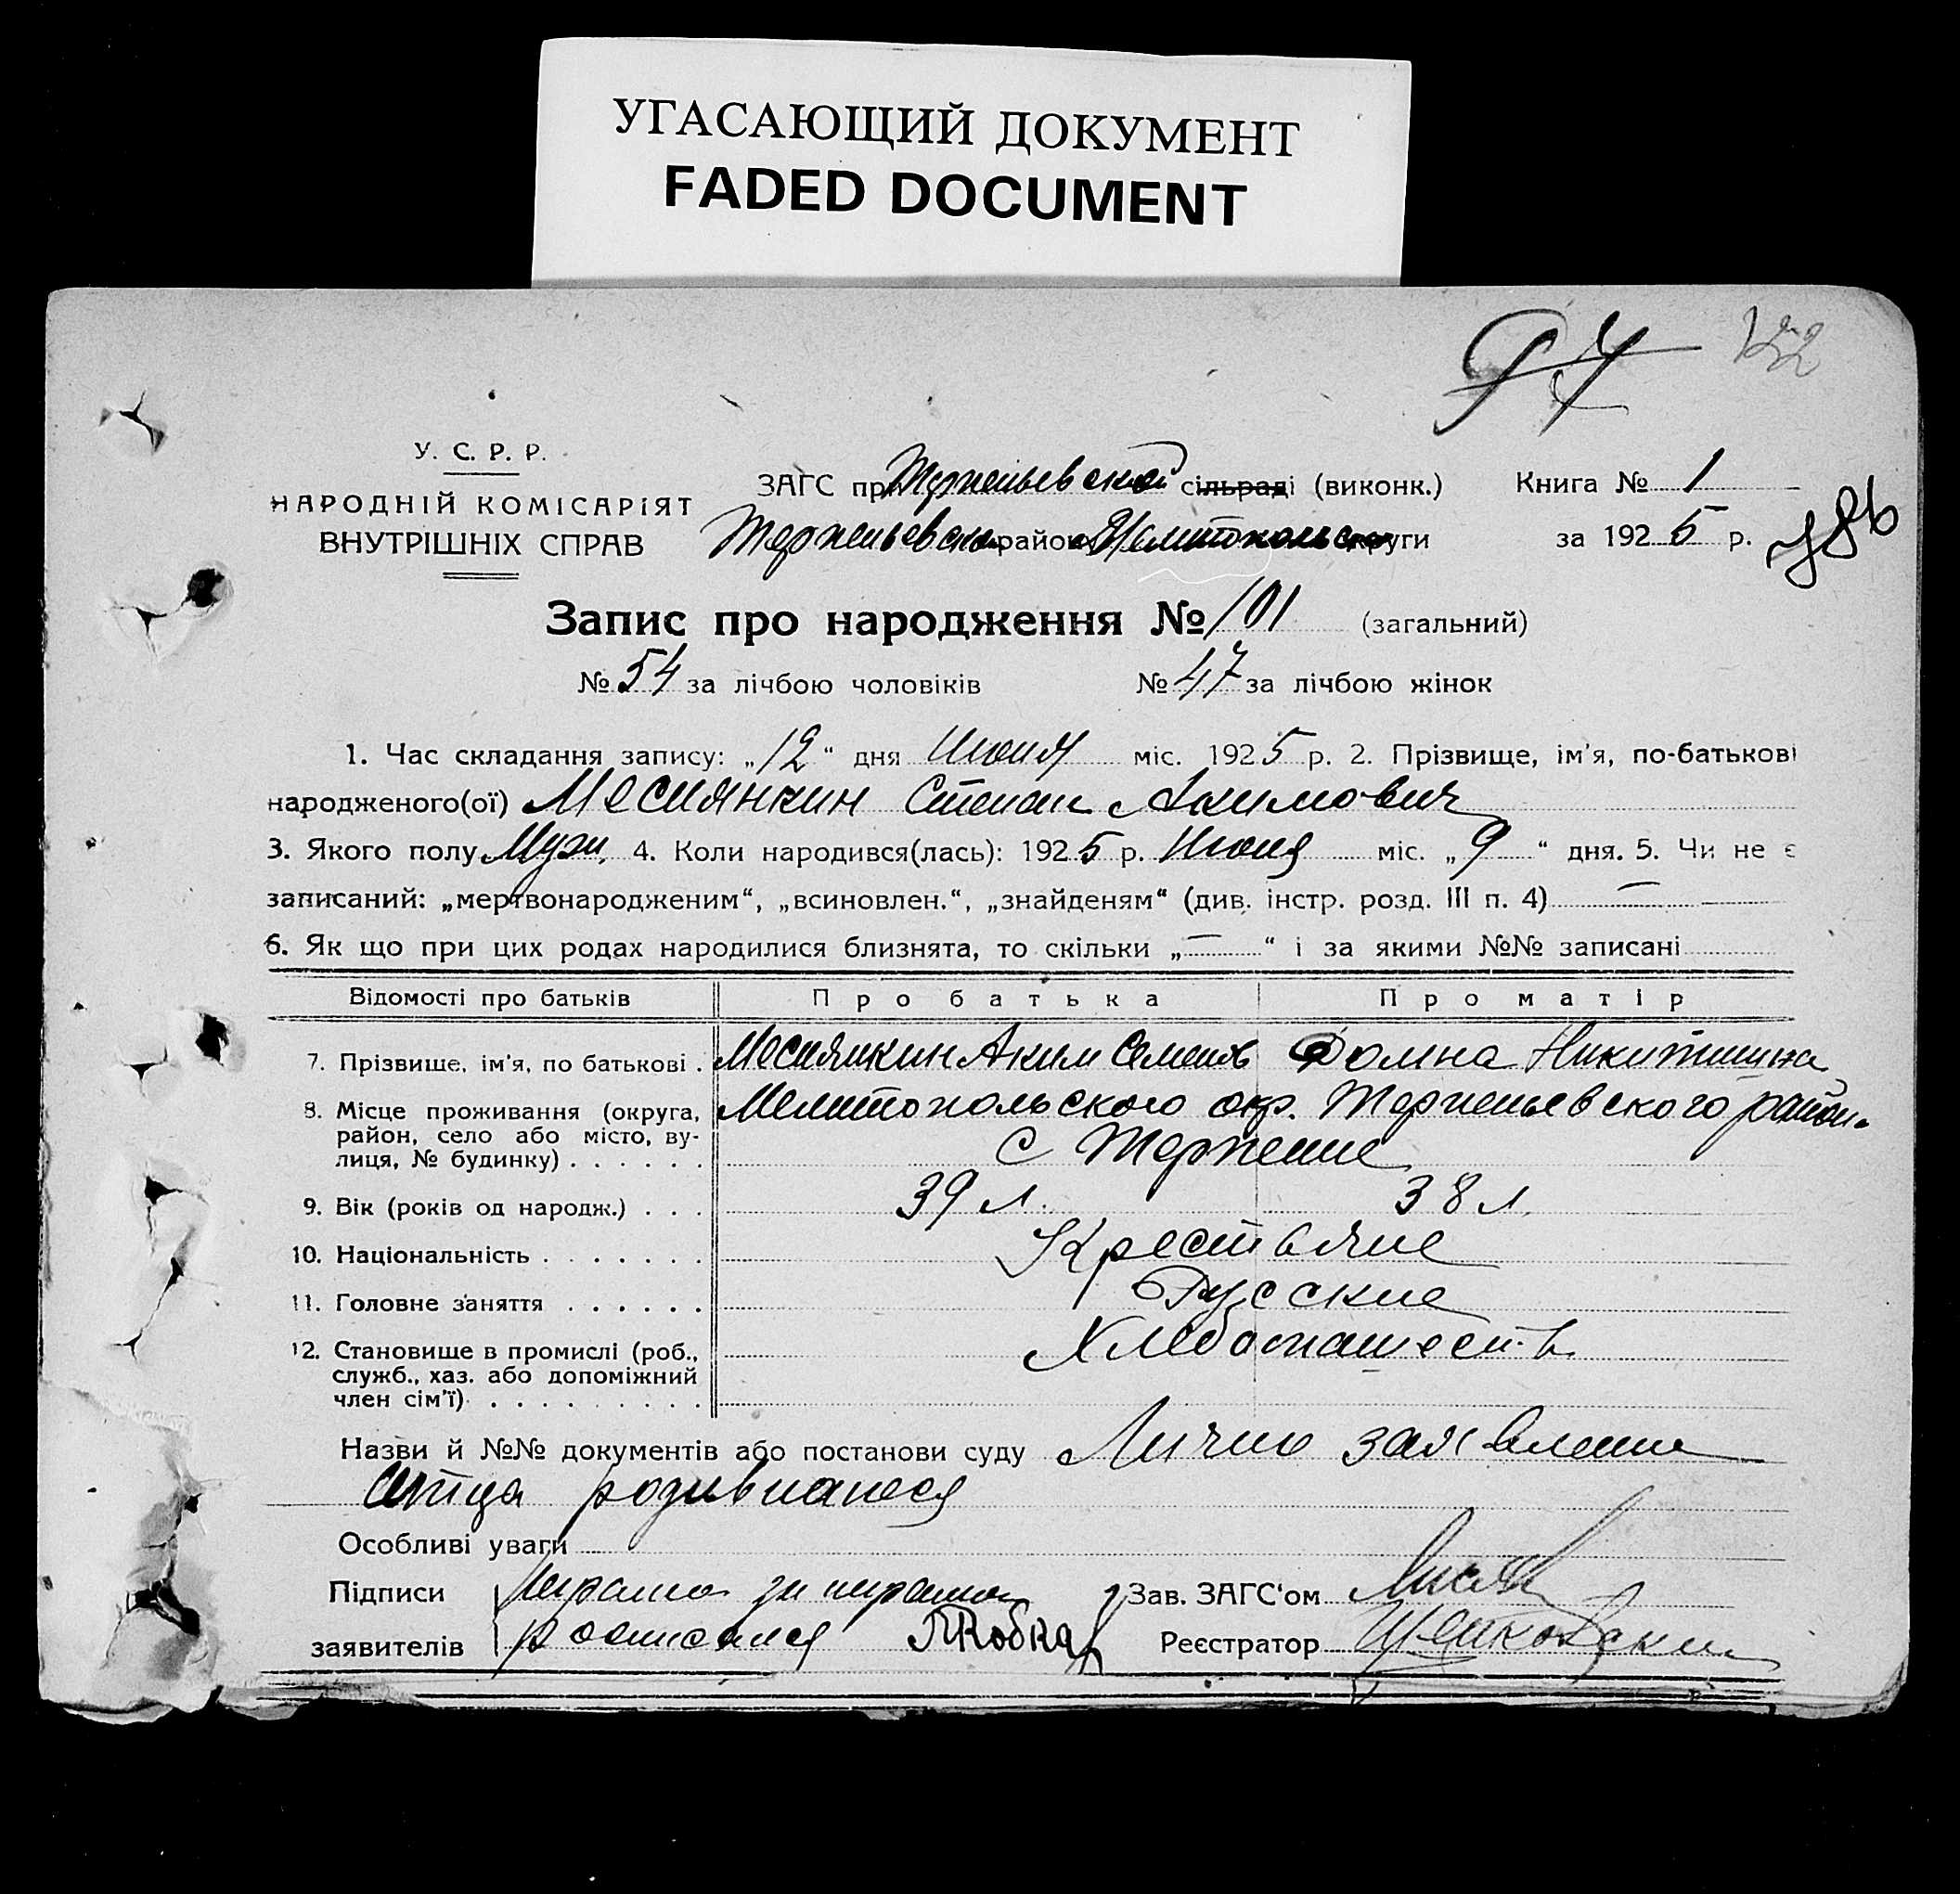 УГАСАЮЩИЙ ДОКУМЕНТ
FADED DOCUMENT
У. С. Р. Р.
НАРОДНІЙ КОМІСАРІЯТ
ВНУТРІШНІХ СПРАВ
ЗАГС при Терпеньевской сільраді (виконк.)
Терпеньевск. району Мелитопольск округи
Книга № 1
за 1925 р.
Запис про народження № 101 (загальний)
№ 54 за лічбою чоловіків № 47 за лічбою жінок
1. Час складання запису: „12“ дня Июня міс. 1925 р. 2. Прізвище, ім'я, по-батькові
народженого(ої) Месилянкин Степан Акимович
3. Якого полу Муж. 4. Коли народився(лась): 1925 р. Июня міс. „9“ дня. 5. Чи не є
записаний: „мертвонародженим“, „всиновлен.“, „знайденям“ (див. інстр. розд. III п. 4) —
6. Як що при цих родах народилися близнята, то скільки „—“ і за якими №№ записані
Відомості про батьків Про батька Про матір
7. Прізвище, ім'я, по батькові . Аким Семенов Домна Никитишна
8. Місце проживання (округа, Мелитопольского окр. Терпеньевского район.
район, село або місто, ву-
лиця, № будинку) . . . . . . с Терпение
9. Вік (років од народж.) . . . 39 л. 38 л.
10. Національність . . . . . . . Крестьяне
11. Головне заняття . . . . . . Русские
12. Становище в промислі (роб., Хлебопашест.
служб., хаз. або допоміжний
член сім'ї) . . . . . . . . .
Назви й №№ документів або постанови суду Лично заявление
отца родившагося
Особливі уваги
Підписи заявителів
росписался
Зав. ЗАГС'ом
Реєстратор